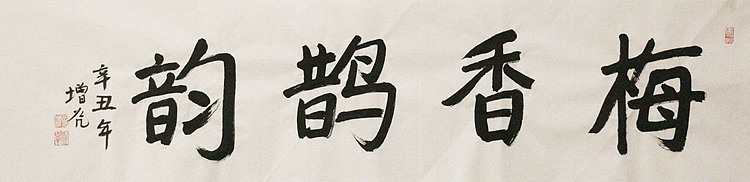 梅香鹊韵
辛丑年
增光